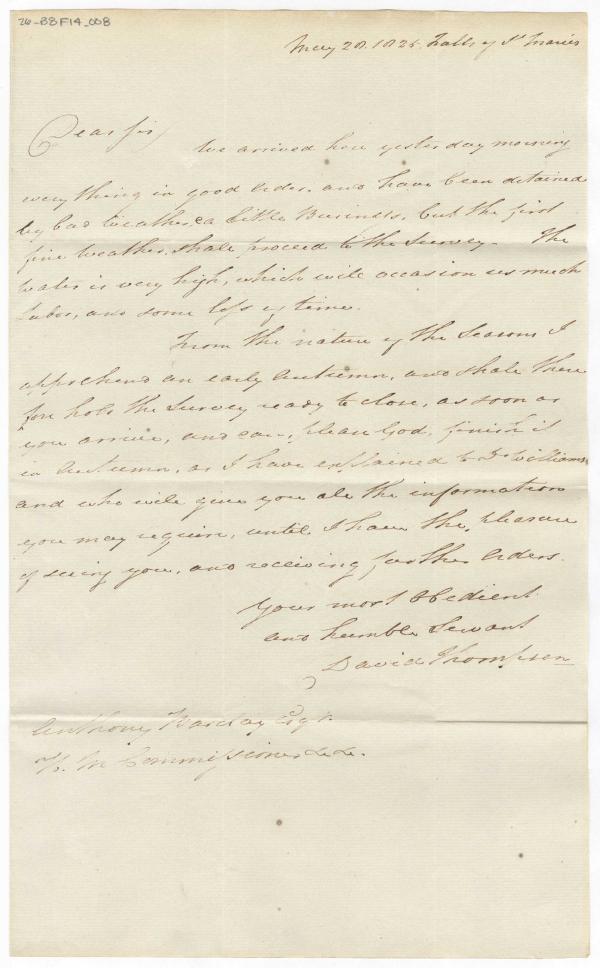 26-BBF14_008
May 20. 1825. Falls of St Maries
Dear Sir,
We arrived here yesterday morning
every thing in good order, and have been detained
by bad Weather, & a little Business, but the first
fine Weather, shall proceed to the Survey. The
Water is very high, which will occasion us much
Labor, and some loss of time.
From the nature of the Seasons I
apprehend an early Autumn, and shall there
fore hold the Survey ready to close, as soon as
you arrive, and can, please God, finish it
in Autumn, as I have explained to Dr Williams
and who will give you all the information
you may require, until I have the pleasure
of seeing you, and receiving further Orders.
Your most Obedient
and humble Servant
David Thompson
Anthony Barclay Esqr.
H. M Commissioner &c &c.